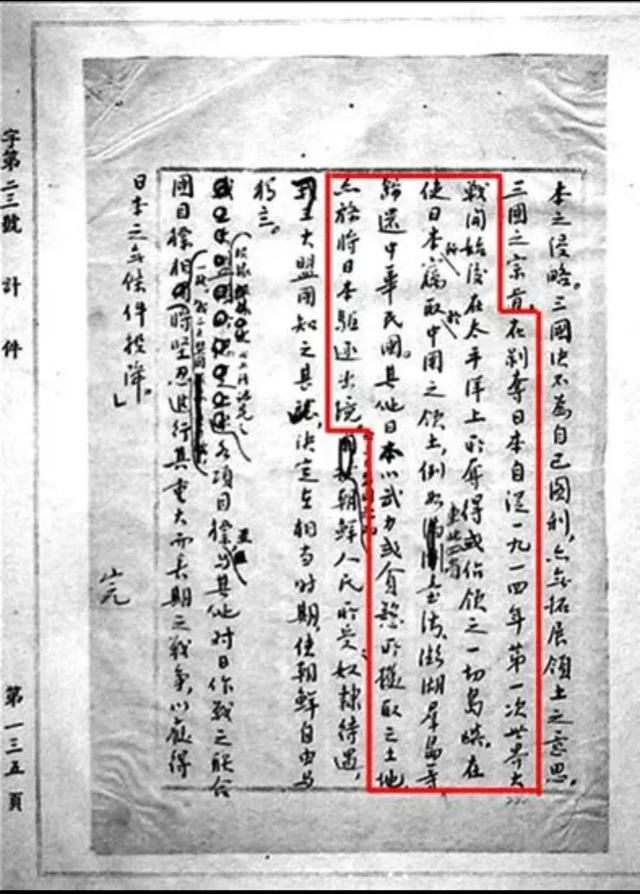 本之侵略。三國決不為自己圖利，亦無拓展領土之意思。
三國之宗旨，在剝奪日本自從一九一四年第一次世界大
戰開始後在太平洋上所奪得或佔領之一切島嶼，在
使日本所竊取於中國之領土，例如東北四省臺灣澎湖羣島等
歸還中華民國。其他日本以武力或貪慾所攫取之土地
亦務將日本驅逐出境，朝鮮人民所受奴隸待遇，
三大盟國知之甚 決定在相當時期使朝鮮自由與
獨立。
各項目標與其他對日作戰之聯合
國目標相同 時堅忍進行其重大而長期之戰爭，以獲得
日本之無條件投降。」
字第二三號 計 件 第一三五頁